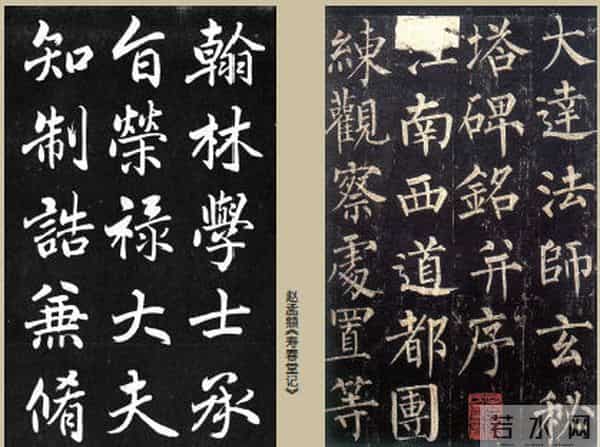 翰林學士承
旨榮祿大夫
知制誥兼脩
赵孟頫《寿春堂记》
大達法師玄秘
塔碑銘并序
江南西道都團
練觀察處置等
若水网